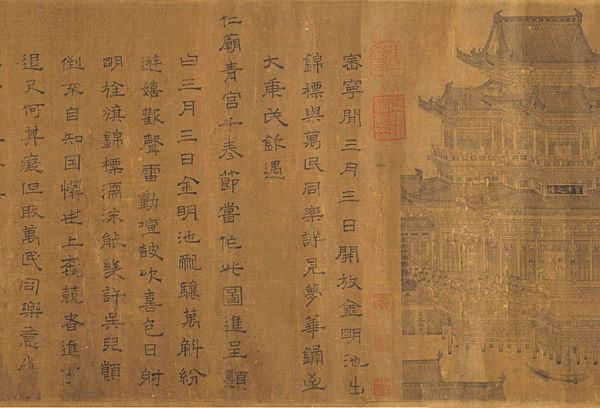 崇寧間三月三日開放金明池出
錦標與萬民同樂詳見夢華錄至
大庚戌欽遇
仁廟青宮千春節嘗作此圖進呈題
曰三月三日金明池龍驤萬斛紛
遊嬉歡聲雷動喧鼓吹喜色日射
明旌旗錦標濡沫能幾許吳兒顛
倒不自知因憐世上奔競者進寸
退尺何其癡但取萬民同樂意